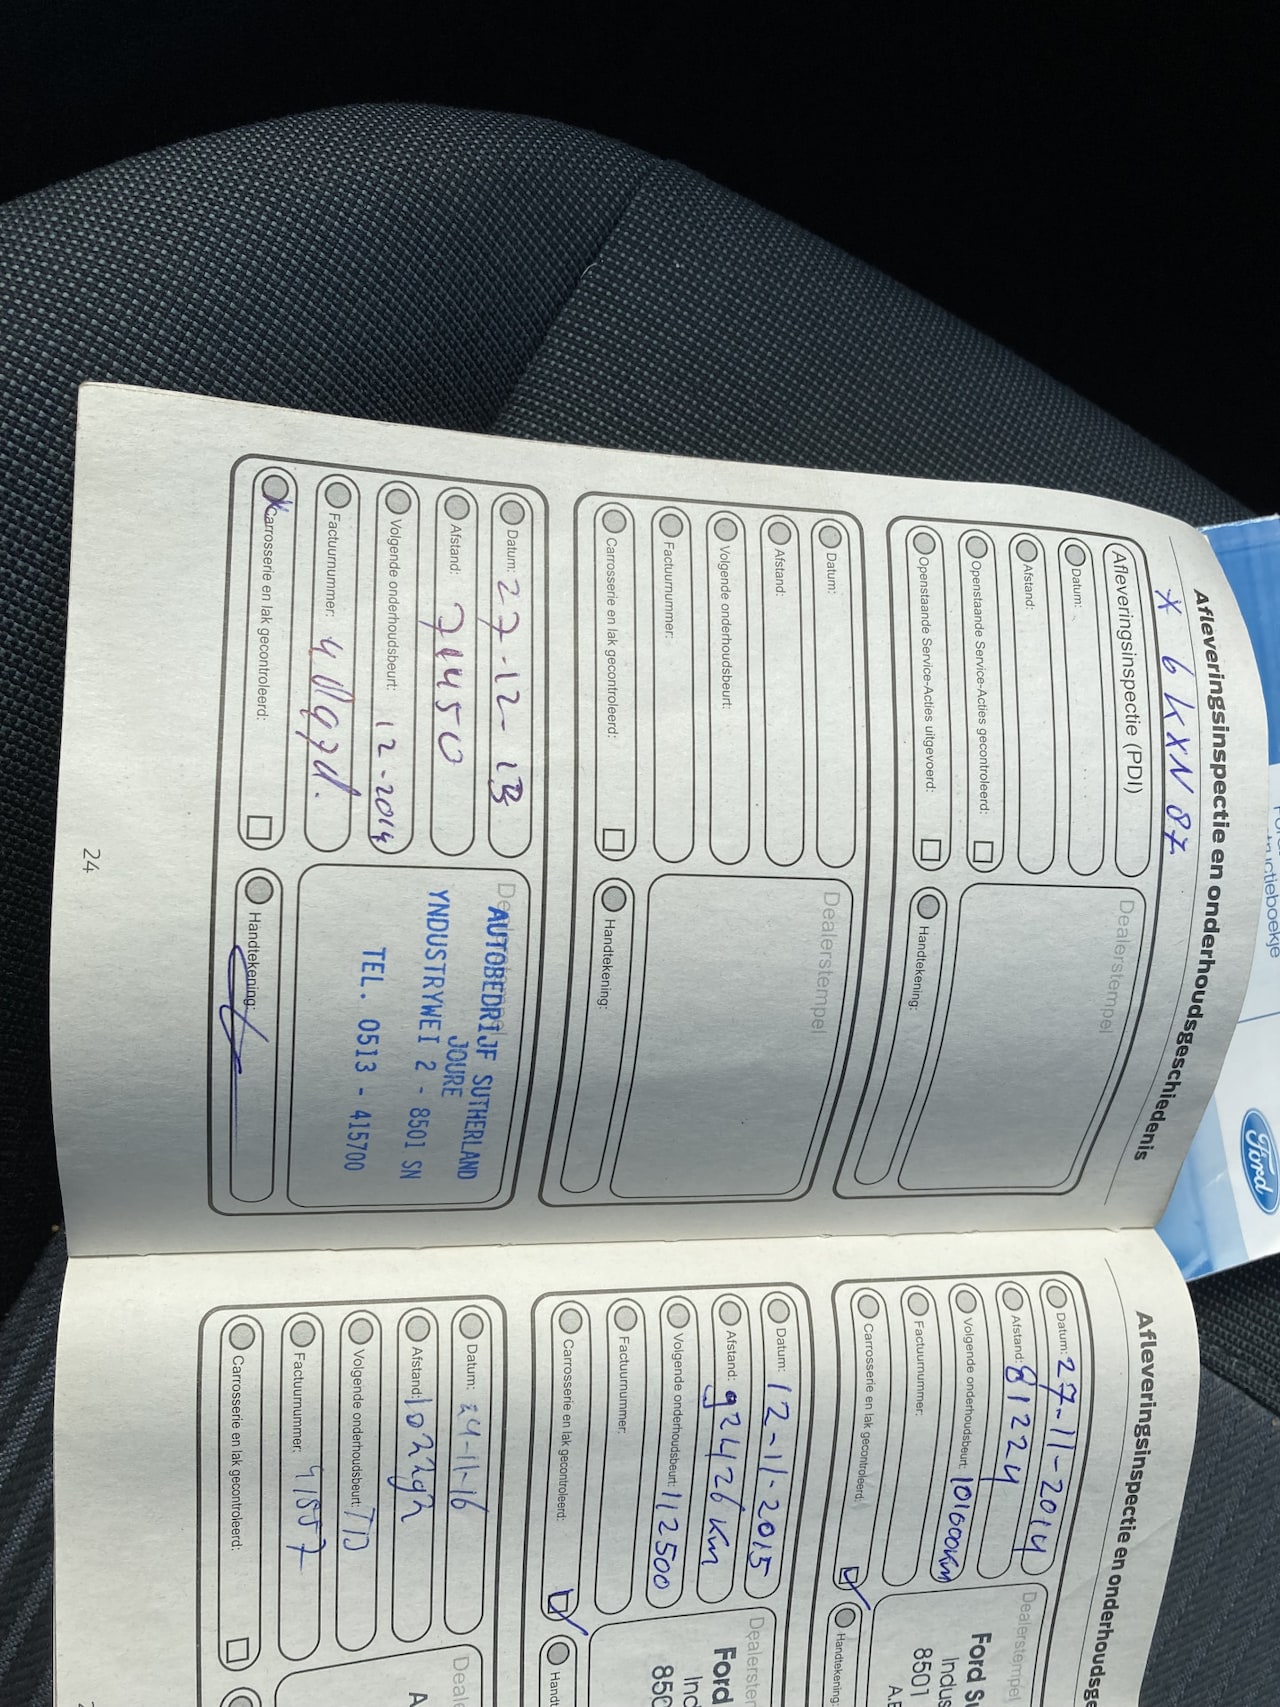 Afleveringsinspectie en onderhoudsgeschiedenis
* 6 KXN 87
Afleveringsinspectie (PDI)
Datum:
Afstand:
Openstaande Service-Acties gecontroleerd:
Openstaande Service-Acties uitgevoerd:
Dealerstempel
Handtekening:
Datum:
Afstand:
Volgende onderhoudsbeurt:
Factuurnummer:
Carrosserie en lak gecontroleerd:
Dealerstempel
Handtekening:
Datum: 27-12-13
Afstand: 71450
Volgende onderhoudsbeurt: 12-2014
Factuurnummer:
Carrosserie en lak gecontroleerd:
AUTOBEDRIJF SUTHERLAND
JOURE
YNDUSTRYWEI 2 - 8501 SN
TEL. 0513 - 415700
Handtekening:
24
Afleveringsinspectie en onderhoudsge
Datum: 27-11-2014
Afstand: 81224
Volgende onderhoudsbeurt: 101600km
Factuurnummer:
Carrosserie en lak gecontroleerd:
Dealerstempel
Ford S
Indus
8501
Handtekening:
Datum: 12-11-2015
Afstand: 92426 km
Volgende onderhoudsbeurt: 112500
Factuurnummer:
Carrosserie en lak gecontroleerd:
Dealerstem
Ford
Ind
850
Handt
Datum: 24-11-16
Afstand:
Volgende onderhoudsbeurt:
Factuurnummer: 41557
Carrosserie en lak gecontroleerd:
Deale
A
Ford
ructieboekje